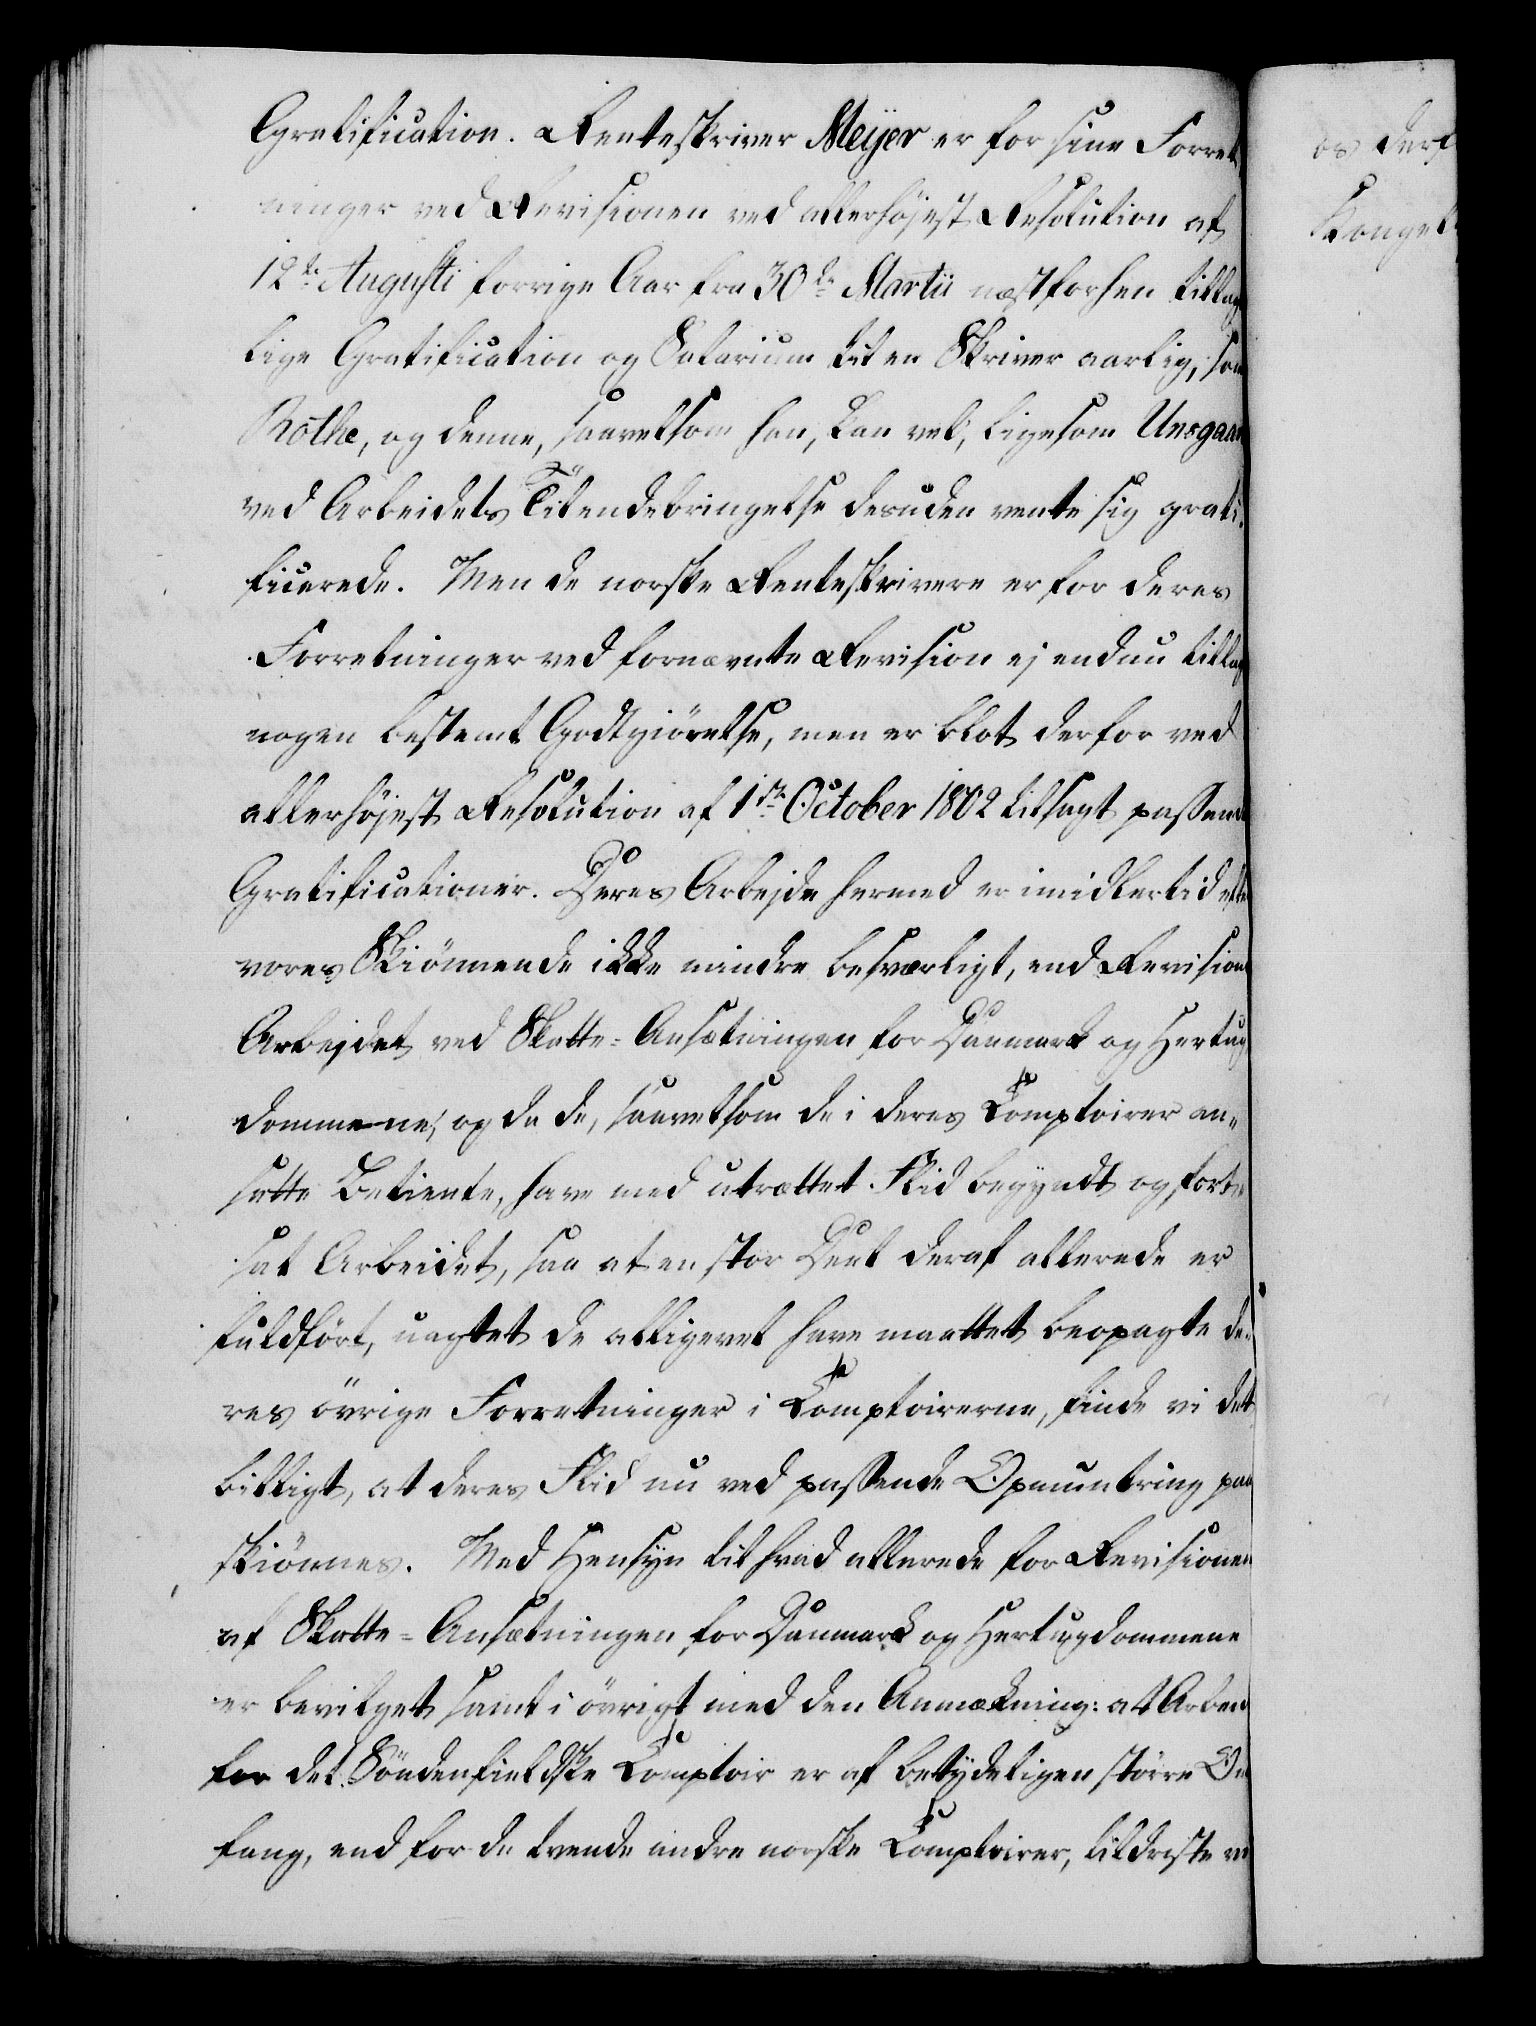 Gratification. Renteskriver Meyer er for sine Forret
ninger ved Revisionen ved allerhøjest Resolution af
12te Augusti forrige Aar fra 30de Martii næstforhen tillagt
lige Gratification og Salarium til en Skriver aarlig, som
Rothe, og denne, saavelsom han, kan vel, ligesom Unsgaar
ved Arbeidets Tilendebringelse desuden vente sig grati-
ficerede. Men de norske Renteskrivere er for deres
Forretninger ved fornævnte Revision ej endnu tillagt
nogen bestemt Godtgiörelse, men er blot derfor ved
allerhøjest Resolution af 1ste October 1802 tilsagt passende
Gratificationer. Deres Arbejde hermed er imidlertid efter
vores Skiönnende ikke mindre besværligt, end Revisions
Arbejdet ved Skatte-Ansætningen for Danmark og Hertug
dommene; og da de, saavelsom de i deres Comptoirer an-
satte Betiente, have med utrættet Flid begyndt og fort-
sat Arbeidet, saa at en stor Deel deraf allerede er
fuldfört, uagtet de alligevel have maattet beopagte de-
res övrige Forretninger i Comptoirerne, finde vi det
billigt, at deres Flid nu ved passende Opmuntring paa
skiönnes. Med Hensyn til hvad allerede for Revisionen
af Skatte-Ansætningen for Danmark og Hertugdommene
er bevilget samt i övrigt med den Anmærkning: at Arbeid
for det Söndenfieldske Comptoir er af betydeligen större Om
fang, end for de tvende andre norske Comptoirer, tildriste vi
os derf
Kongel